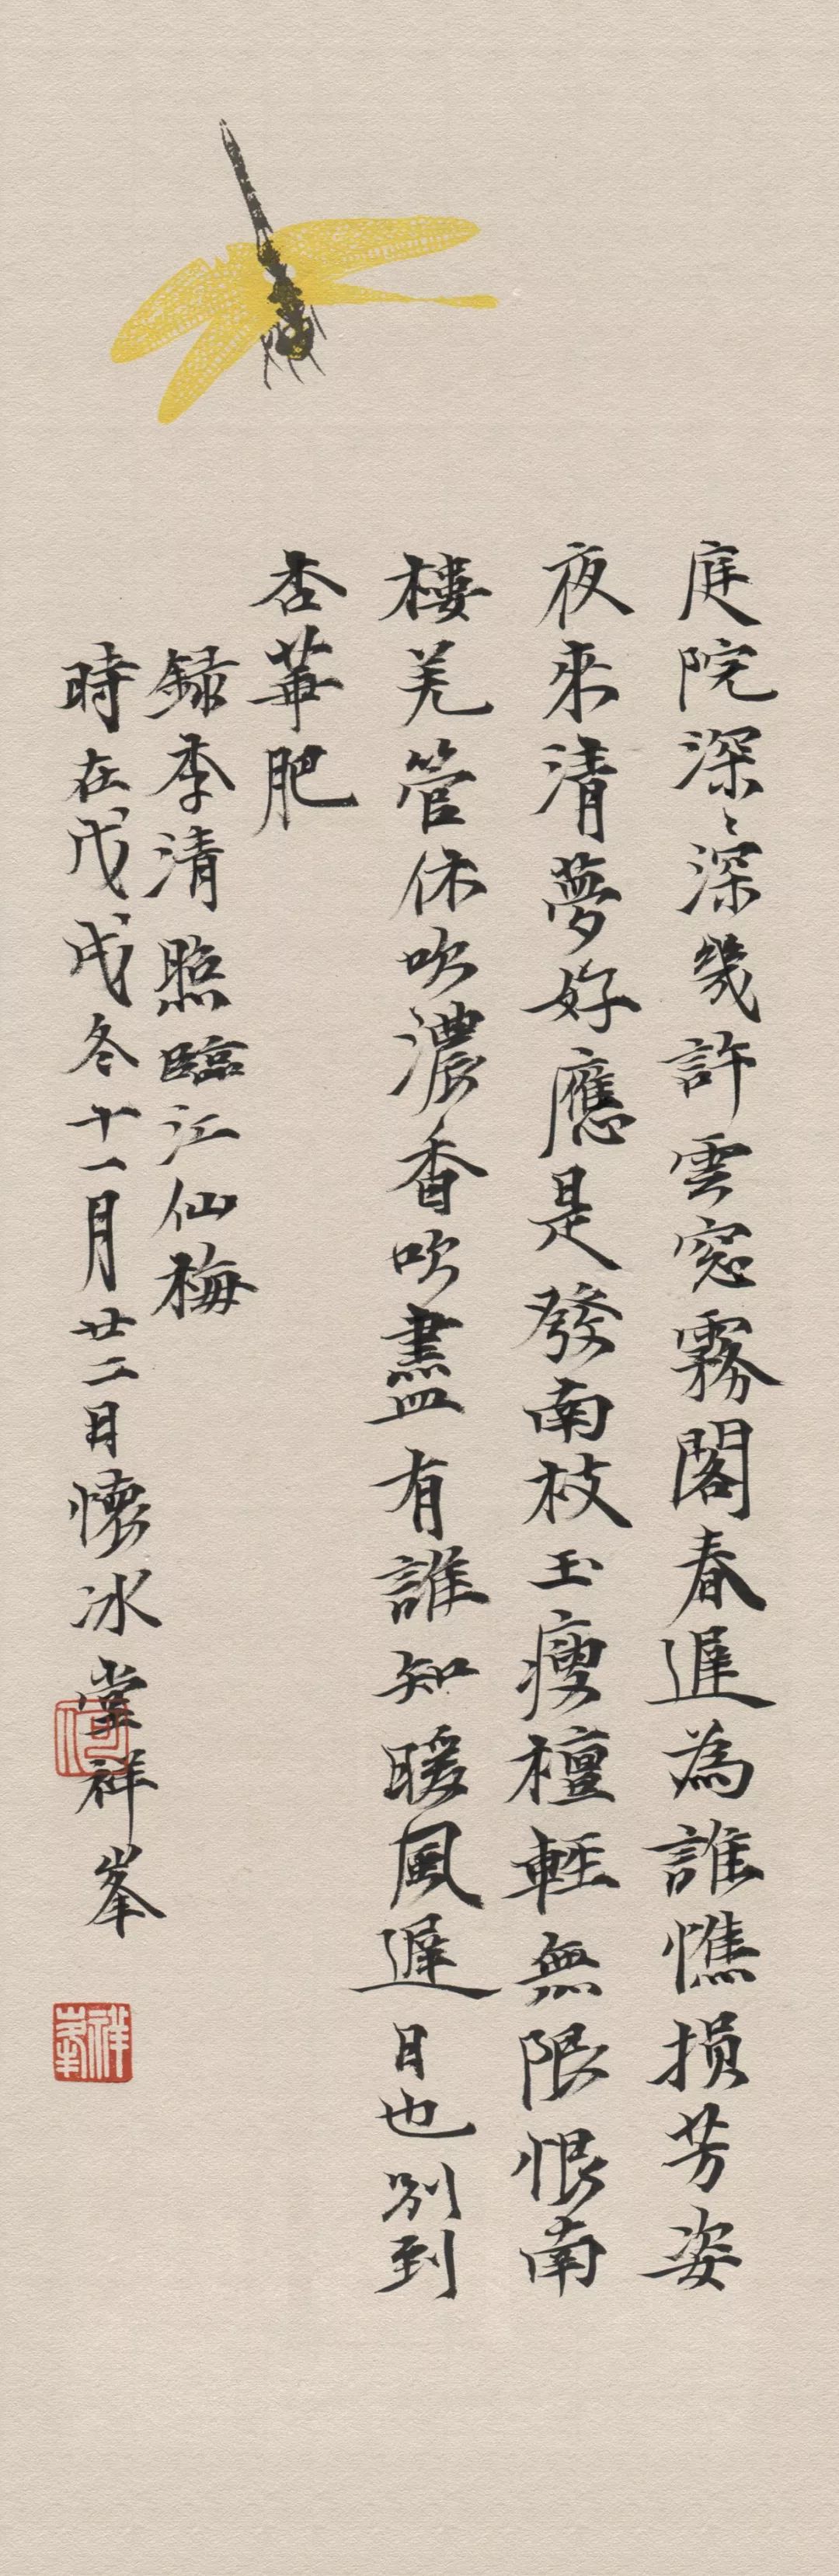 庭院深〻深幾許雲窓霧閣春遅為誰憔損芳姿
夜來清夢好應是發南枝玉瘦檀輕無限恨南
樓羌管休吹濃香吹盡有誰知暖風遲日也别到
杏華肥
録李清照臨江仙梅
時在戊戌冬十一月廿二日懷冰堂祥峯
祥峯